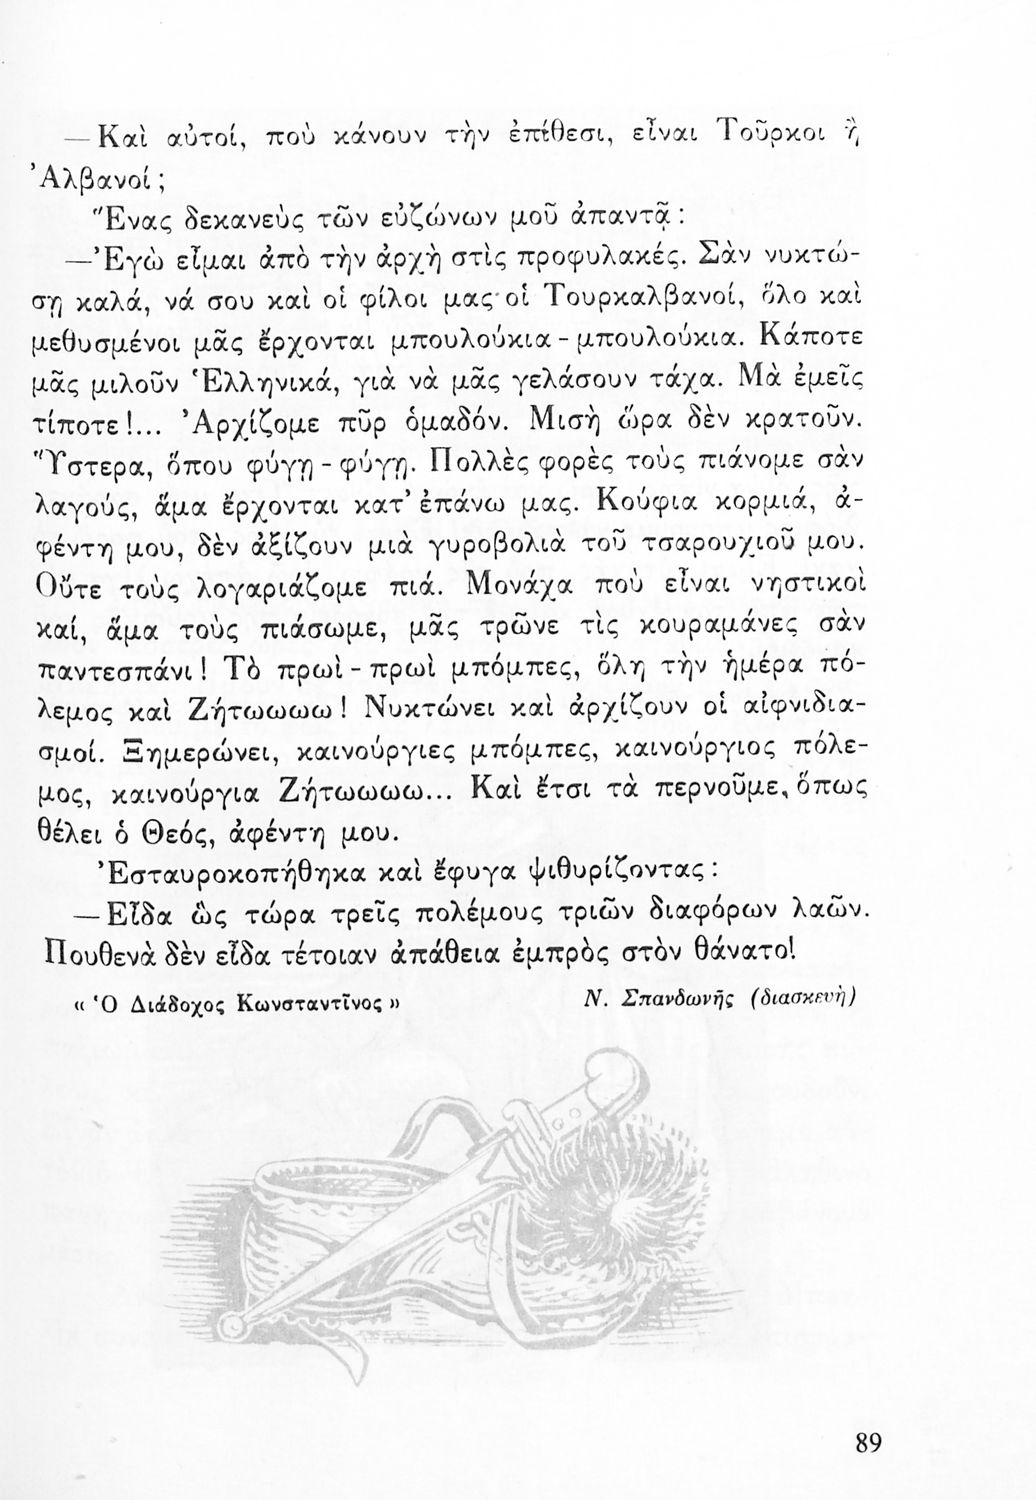 — Καὶ αὐτοί, ποὺ κάνουν τὴν ἐπίθεσι, εἶναι Τοῦρκοι ἢ
Ἀλβανοί ;
Ἕνας δεκανεὺς τῶν εὐζώνων μοῦ ἀπαντᾷ :
—Ἐγὼ εἶμαι ἀπὸ τὴν ἀρχὴ στὶς προφυλακές. Σὰν νυκτώ-
σῃ καλά, νά σου καὶ οἱ φίλοι μας οἱ Τουρκαλβανοί, ὅλο καὶ
μεθυσμένοι μᾶς ἔρχονται μπουλούκια - μπουλούκια. Κάποτε
μᾶς μιλοῦν Ἑλληνικά, γιὰ νὰ μᾶς γελάσουν τάχα. Μὰ ἐμεῖς
τίποτε !... Ἀρχίζομε πῦρ ὁμαδόν. Μισὴ ὥρα δὲν κρατοῦν.
Ὕστερα, ὅπου φύγῃ - φύγῃ. Πολλὲς φορὲς τοὺς πιάνομε σὰν
λαγούς, ἅμα ἔρχονται κατ' ἐπάνω μας. Κούφια κορμιά, ἀ-
φέντη μου, δὲν ἀξίζουν μιὰ γυροβολιὰ τοῦ τσαρουχιοῦ μου.
Οὔτε τοὺς λογαριάζομε πιά. Μονάχα ποὺ εἶναι νηστικοὶ
καί, ἅμα τοὺς πιάσωμε, μᾶς τρῶνε τὶς κουραμάνες σὰν
παντεσπάνι ! Τὸ πρωὶ - πρωὶ μπόμπες, ὅλη τὴν ἡμέρα πό-
λεμος καὶ Ζήτωωωω ! Νυκτώνει καὶ ἀρχίζουν οἱ αἰφνιδια-
σμοί. Ξημερώνει, καινούργιες μπόμπες, καινούργιος πόλε-
μος, καινούργια Ζήτωωωω... Καὶ ἔτσι τὰ περνοῦμε, ὅπως
θέλει ὁ Θεός, ἀφέντη μου.
Ἐσταυροκοπήθηκα καὶ ἔφυγα ψιθυρίζοντας :
— Εἶδα ὣς τώρα τρεῖς πολέμους τριῶν διαφόρων λαῶν.
Πουθενὰ δὲν εἶδα τέτοιαν ἀπάθεια ἐμπρὸς στὸν θάνατο!
« Ὁ Διάδοχος Κωνσταντῖνος » Ν. Σπανδωνῆς (διασκευὴ)
89